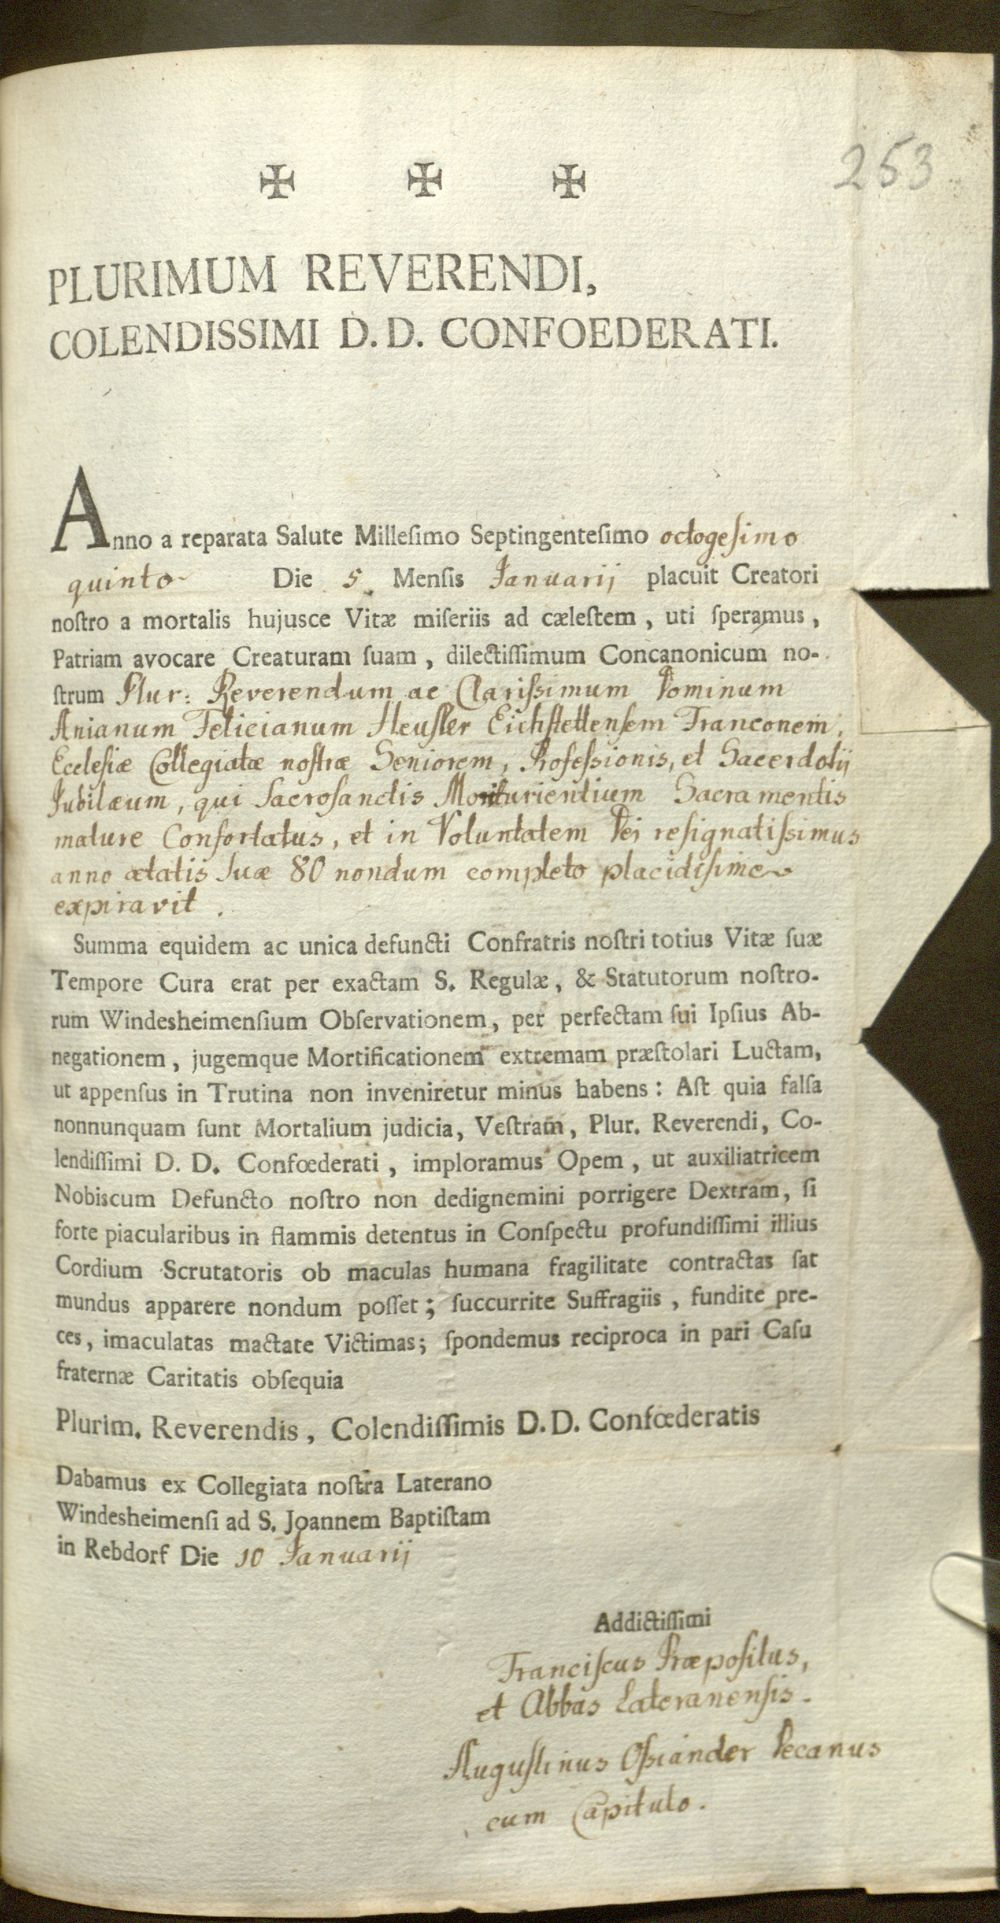 253
PLURIMUM REVERENDI,
COLENDISSIMI D. D. CONFOEDERATI.
Anno a reparata Salute Millesimo Septingentesimo octogesimo
quinto Die 5. Mensis Januarij placuit Creatori
nostro a mortalis hujusce Vitæ miseriis ad cælestem, uti speramus,
Patriam avocare Creaturam suam, dilectissimum Concanonicum no-
strum Plur: Reverendum ac Clarissimum Dominum
Anianum Felicianum Heusler Eichstettensem Franconem,
Ecclesiæ Collegiatæ nostræ Seniorem, Professionis, et Sacerdotij
Jubilæum, qui Sacrosanctis Moriturientium Sacramentis
mature Confortatus, et in Voluntatem Dei resignatissimus
anno ætatis suæ 80 nondum completo placidissime
expiravit.
Summa equidem ac unica defuncti Confratris nostri totius Vitæ suæ
Tempore Cura erat per exactam S. Regulæ, & Statutorum nostro-
rum Windesheimensium Observationem, per perfectam sui Ipsius Ab-
negationem, jugemque Mortificationem extremam præstolari Luctam,
ut appensus in Trutina non inveniretur minus habens: Ast quia falsa
nonnunquam sunt Mortalium judicia, Vestram, Plur. Reverendi, Co-
lendissimi D. D. Confœderati, imploramus Opem, ut auxiliatricem
Nobiscum Defuncto nostro non dedignemini porrigere Dextram, si
forte piacularibus in flammis detentus in Conspectu profundissimi illius
Cordium Scrutatoris ob maculas humana fragilitate contractas sat
mundus apparere nondum posset; succurrite Suffragiis, fundite pre-
ces, imaculatas mactate Victimas; spondemus reciproca in pari Casu
fraternæ Caritatis obsequia
Plurim. Reverendis, Colendissimis D. D. Confœderatis
Dabamus ex Collegiata nostra Laterano
Windesheimensi ad S. Joannem Baptistam
in Rebdorf Die 10 Januarij
Addictissimi
Franciscus Præpositus,
et Abbas Lateranensis.
Augustinus Ossiander Decanus
cum Capitulo.